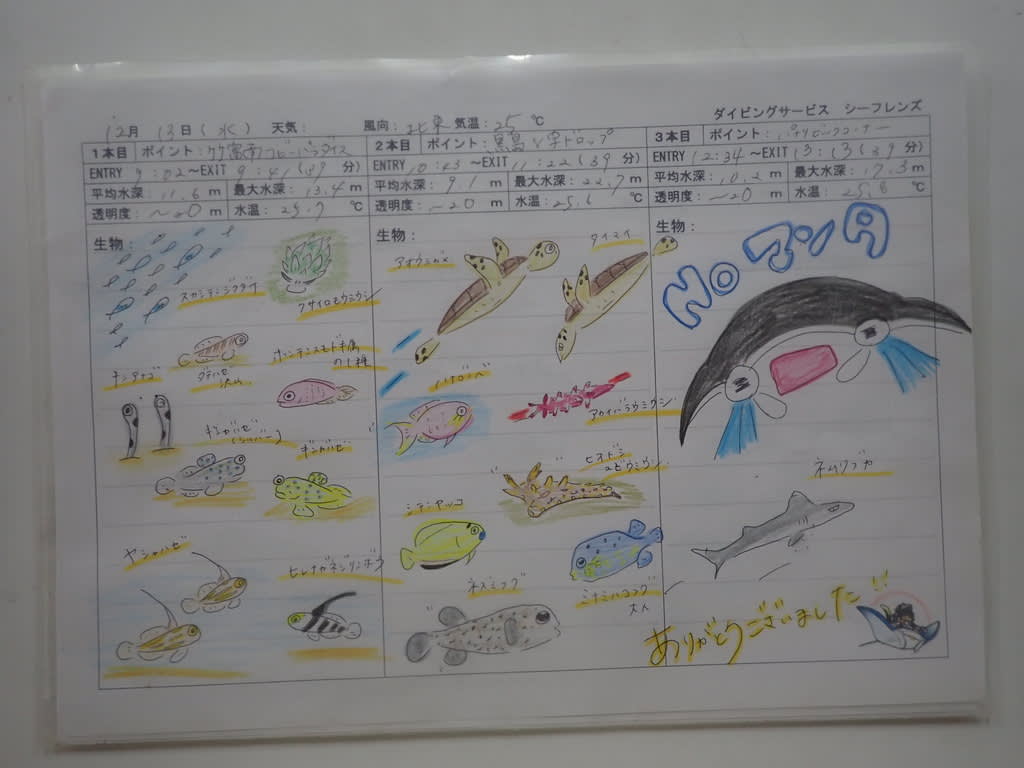 ダイビングサービス シーフレンズ
12月 13日(水) 天気: 風向:北東 気温:25 ℃
1本目 ポイント:
ENTRY 9:02～EXIT 9:41(39 分)
平均水深:11.6 m 最大水深:13.4 m
透明度:～20 m 水温:25.7 ℃
生物:
スカシテンジクダイ
クサイロモウミウシ
ダテハゼ
チンアナゴ
ギンガハゼ
ギンガハゼ
ヤシャハゼ
ヒレナガネジリンボウ
2本目 ポイント:黒島V字ドロップ
ENTRY 10:43～EXIT 11:22(39 分)
平均水深:9.1 m 最大水深:22.7 m
透明度:～20 m 水温:25.6 ℃
生物:
アオウミガメ
タイマイ
ハナゴンベ
アカイバラウミウシ
シテンヤッコ
ネズミフグ
ミナミハコフグ
3本目 ポイント:パナリロックコーナー
ENTRY 12:34～EXIT 13:13(39 分)
平均水深:10.2 m 最大水深:17.3 m
透明度:～20 m 水温:25.8 ℃
Noマンタ
ネムリブカ
ありがとうございました!!